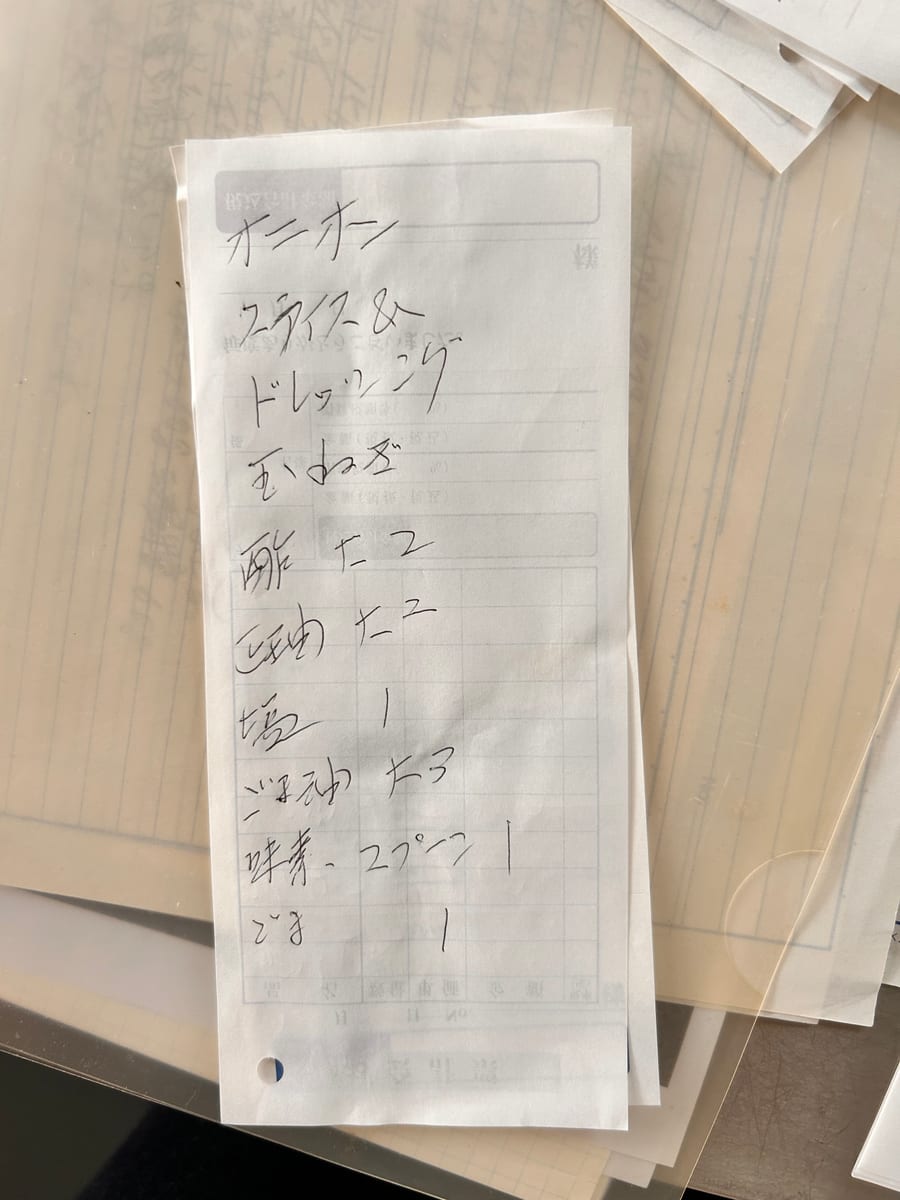 オニオーン
スライス&
ドレッシング
玉ねぎ
酢 大2
正油 大2
塩 1
ごま油 大3
味素、スプーン 1
ごま 1